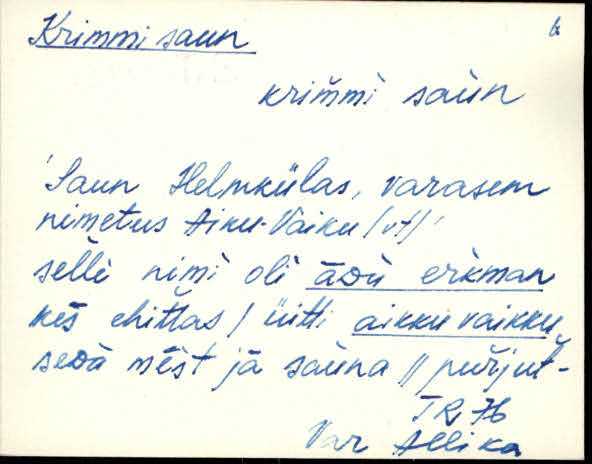 Krimmi saun
krim̆mi saun
'Saun Helmkülas, varasem
nimetus Aiku-Vaiku (vt)'
selle nimi oli ädu erikman
kes ehittas / üitti aikku vaikku
seda mėst ja sauna //
TRH
Var Allika